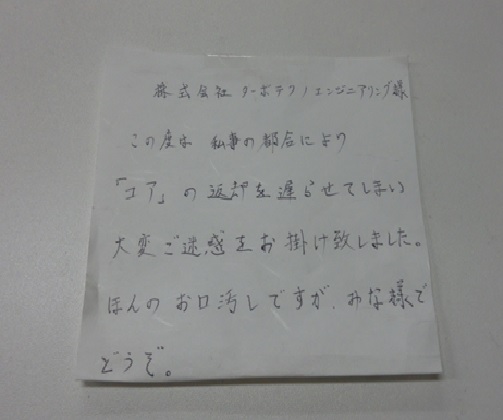 株式会社ターボテクノエンジニアリング様
この度は 私事の都合により
「コア」の返却を遅らせてしまい
大変ご迷惑をお掛け致しました。
ほんのお口汚しですが、みな様で
どうぞ。